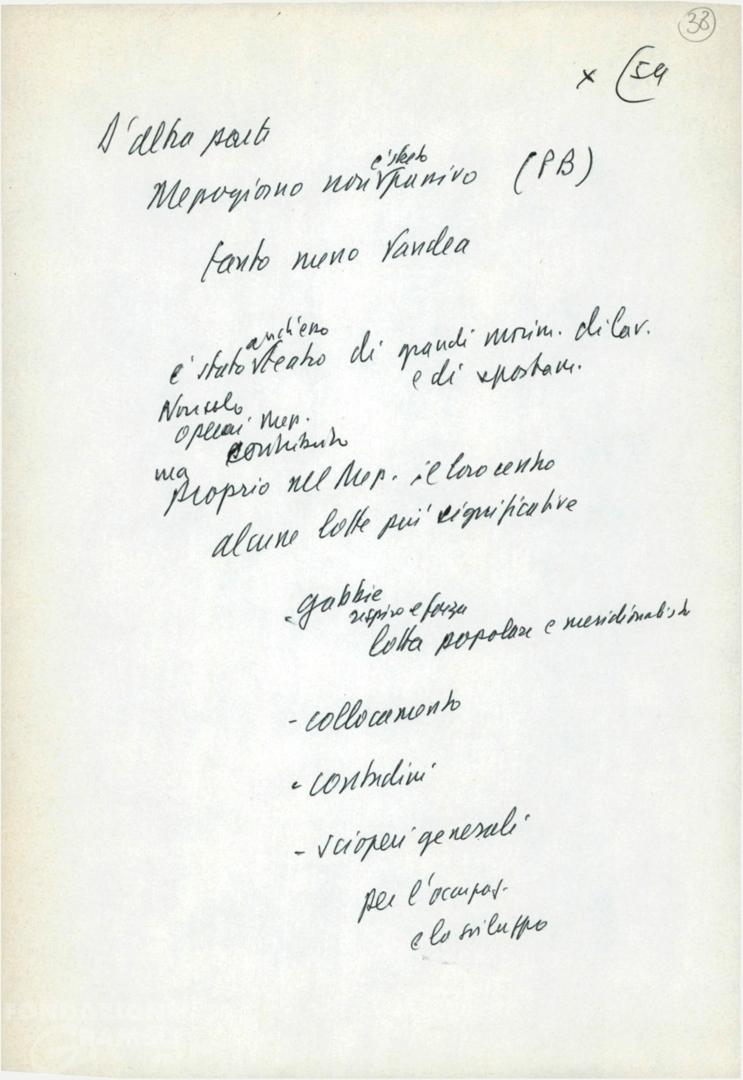 38
x (54
D'altra parte
Mezzogiorno non è stato passivo (PB)
tanto meno Vandea
è stato anch'esso teatro di grandi movim. di lav.
e di spostam.
Non solo
operai mer.
ma contributo
proprio nel Mez. il loro centro
alcune lotte più significative
- gabbie
respiro e forza
lotta popolare e meridionalista
- collocamento
- contadini
- scioperi generali
per l'occupaz.
e lo sviluppo
FONDAZIONE
GRAMSCI